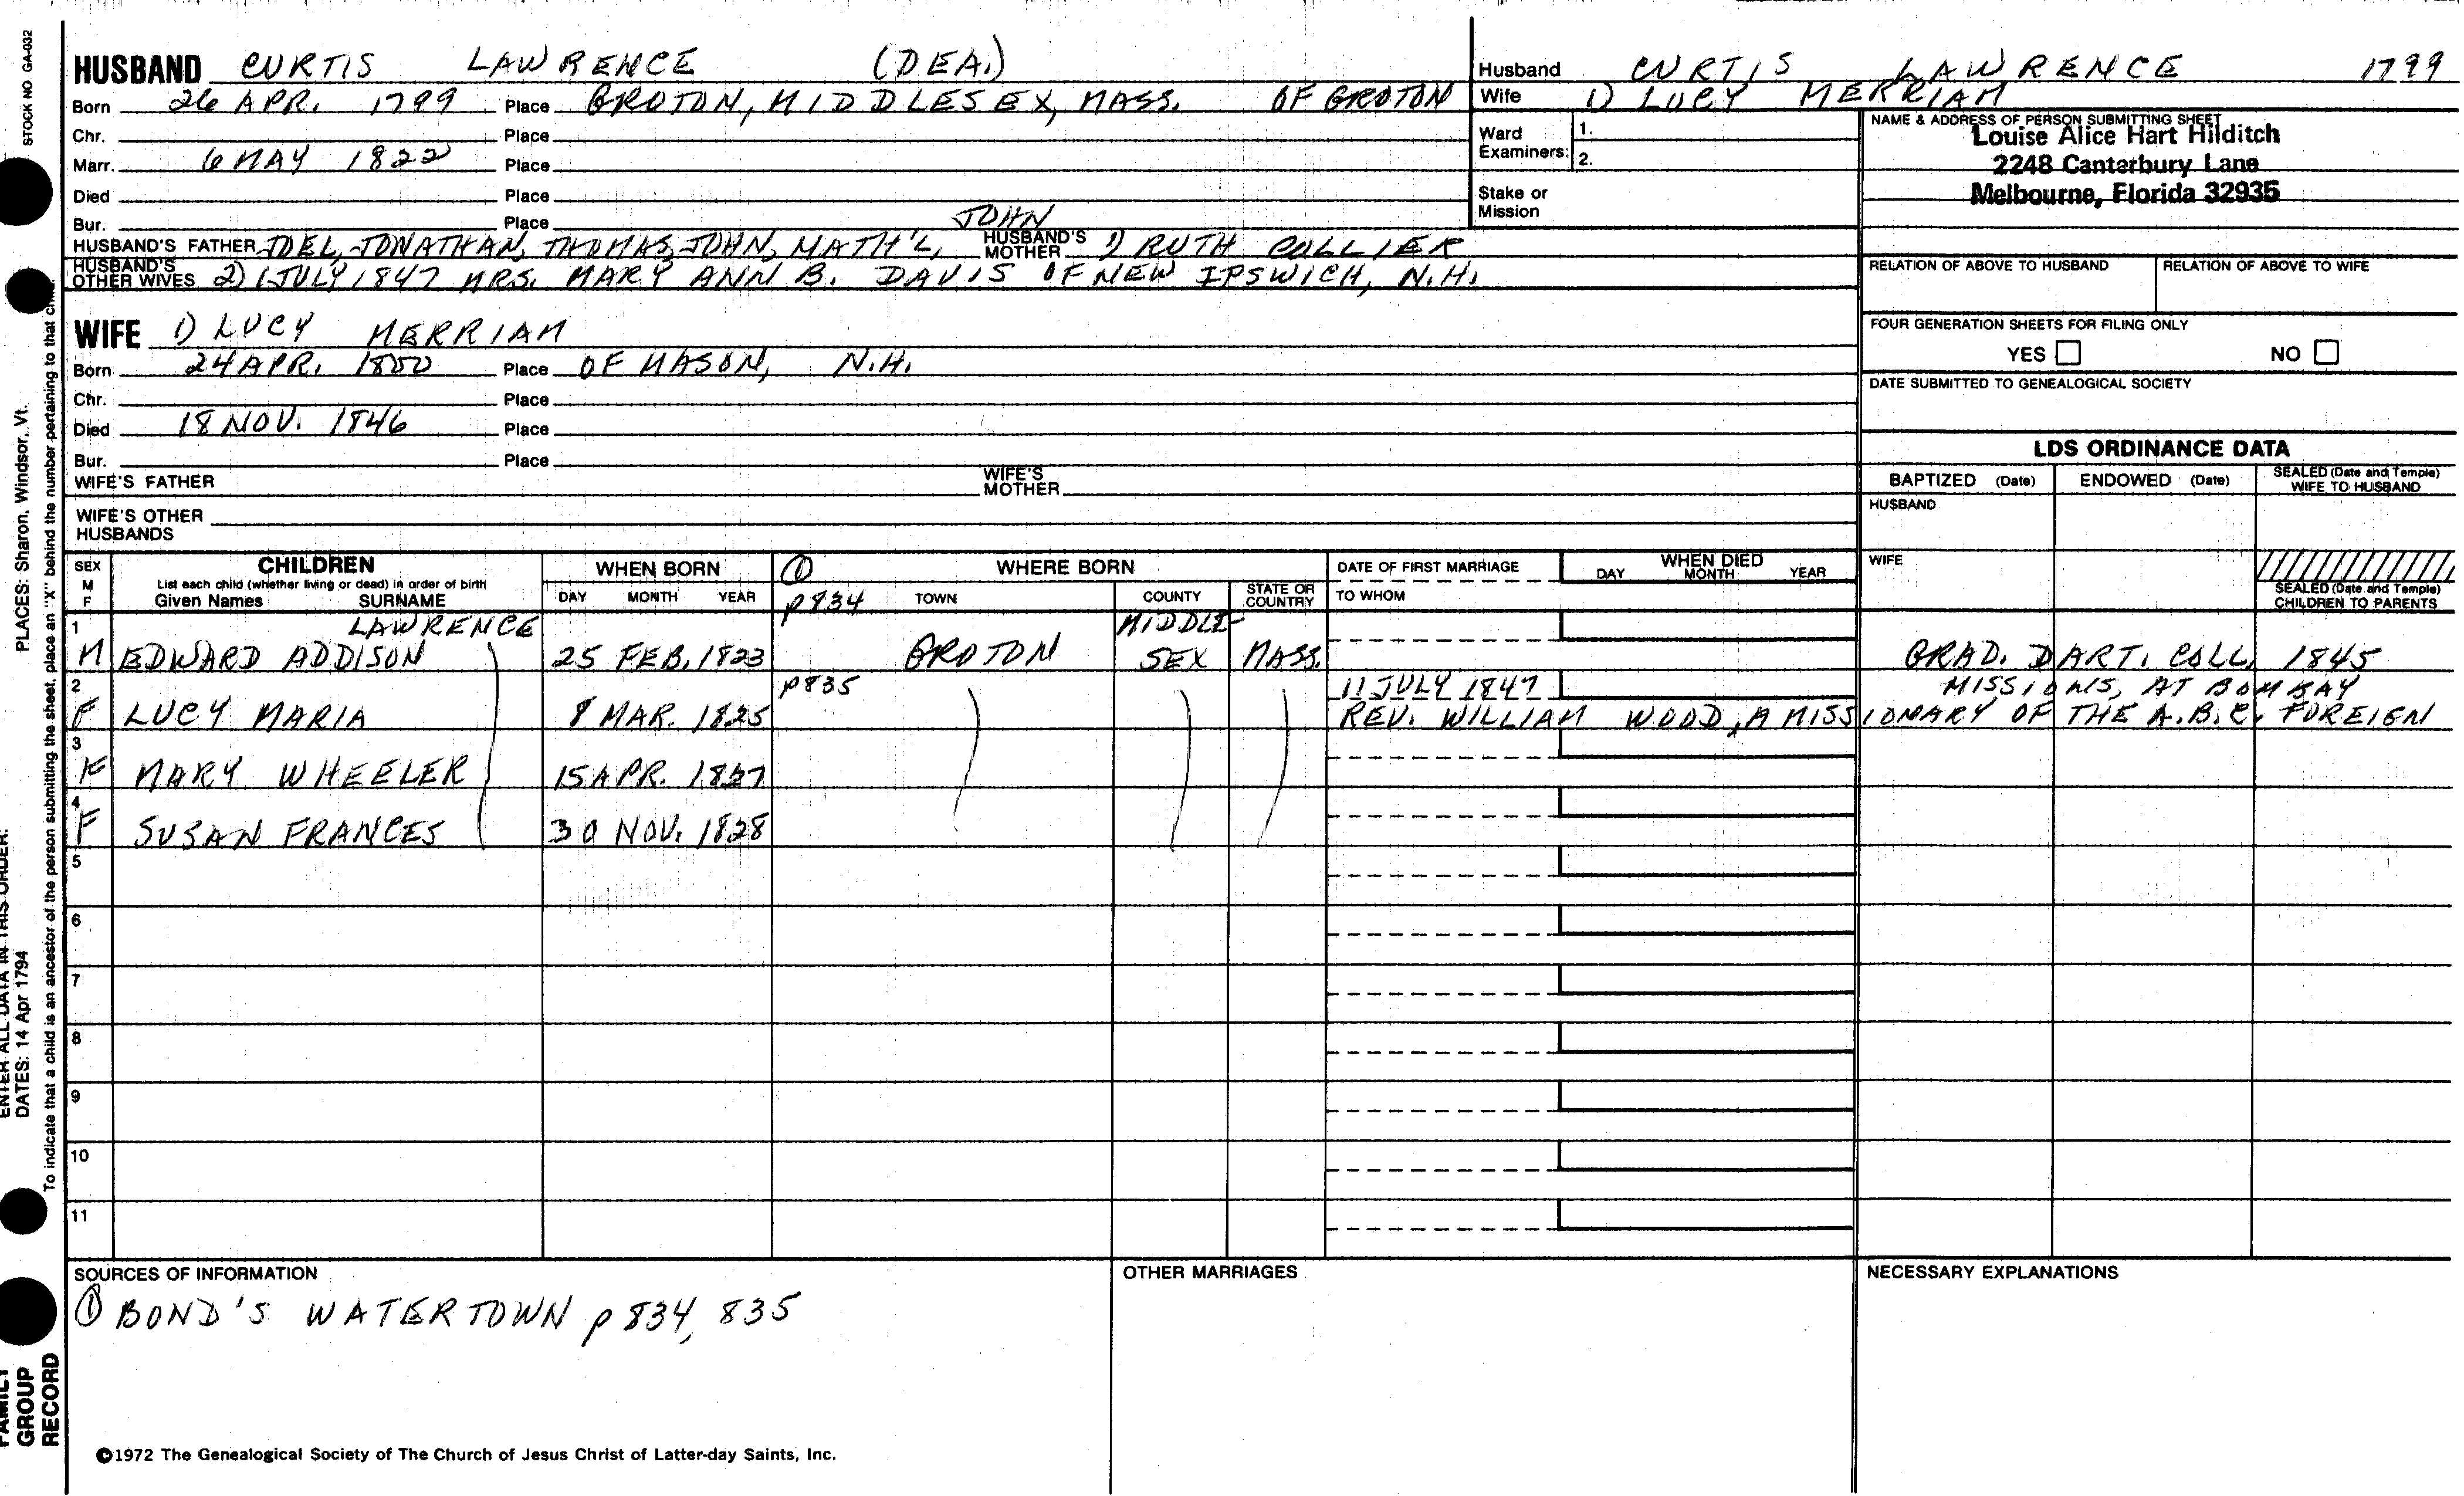 STOCK NO. GA-032
PLACES: Sharon, Windsor, Vt.
ENTER ALL DATA IN THIS ORDER:
DATES: 14 Apr 1794
To indicate that a child is an ancestor of the person submitting the sheet, place an "X" behind the number pertaining to that child.
FAMILY GROUP RECORD
HUSBAND CURTIS LAWRENCE (DEA.)
Born 26 APR. 1799 Place GROTON, MIDDLESEX, MASS. OF GROTON
Chr. Place
Marr. 6 MAY 1822 Place
Died Place
Bur. Place
JOHN
HUSBAND'S FATHER JOEL, JONATHAN, THOMAS, JOHN, MATH'L, HUSBAND'S MOTHER 1) RUTH COLLIER
HUSBAND'S OTHER WIVES 2) 1 JULY 1847 MRS. MARY ANN B. DAVIS OF NEW IPSWICH, N.H.
WIFE 1) LUCY MERRIAM
Born 24 APR. 1800 Place OF MASON, N.H.
Chr. Place
Died 18 NOV. 1846 Place
Bur. Place
WIFE'S FATHER WIFE'S MOTHER
WIFE'S OTHER HUSBANDS
Husband CURTIS LAWRENCE 1799
Wife 1) LUCY MERRIAM
Ward Examiners: 1. 2.
Stake or Mission
NAME & ADDRESS OF PERSON SUBMITTING SHEET
Louise Alice Hart Hilditch
2248 Canterbury Lane
Melbourne, Florida 32935
RELATION OF ABOVE TO HUSBAND RELATION OF ABOVE TO WIFE
FOUR GENERATION SHEETS FOR FILING ONLY
YES NO
DATE SUBMITTED TO GENEALOGICAL SOCIETY
LDS ORDINANCE DATA
BAPTIZED (Date) ENDOWED (Date) SEALED (Date and Temple) WIFE TO HUSBAND
HUSBAND
WIFE
SEALED (Date and Temple) CHILDREN TO PARENTS
SEX M F
CHILDREN
List each child (whether living or dead) in order of birth
Given Names SURNAME
WHEN BORN
DAY MONTH YEAR
① WHERE BORN
p834 TOWN COUNTY STATE OR COUNTRY
DATE OF FIRST MARRIAGE
TO WHOM
WHEN DIED
DAY MONTH YEAR
1 LAWRENCE MIDDLE-
M EDWARD ADDISON 25 FEB. 1823 GROTON SEX MASS. GRAD. DART. COLL. 1845
2 p835 11 JULY 1847 MISSIONS, AT BOMBAY
F LUCY MARIA 8 MAR. 1825 REV. WILLIAM WOOD, A MISSIONARY OF THE A.B.C. FOREIGN
3
F MARY WHEELER 15 APR. 1827
4
F SUSAN FRANCES 30 NOV. 1828
5
6
7
8
9
10
11
SOURCES OF INFORMATION
① BOND'S WATERTOWN p 834, 835
OTHER MARRIAGES
NECESSARY EXPLANATIONS
©1972 The Genealogical Society of The Church of Jesus Christ of Latter-day Saints, Inc.